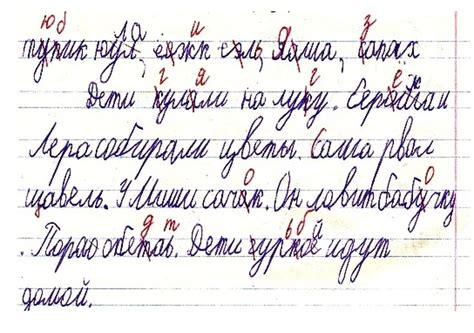 тупик юула, ёжжк ель, Яаша, сапах
Дети кулали на луку. Серёжа и
Лера собирали цветы. Саша рвал
щавель. У Миши сачак. Он ловит бабучку
. Пора обетаь. Дети гуркой идут
домой.